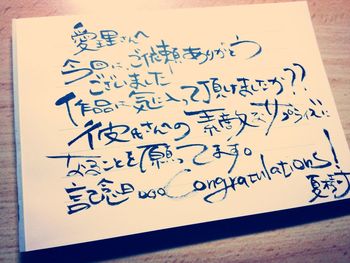 愛里さんへ
今回は、ご依頼ありがとう
ございました
作品は気に入って頂けましたか??
彼氏さんへの素敵なサプライズに
なることを願ってます。
記念日... Congratulations!
夏樹